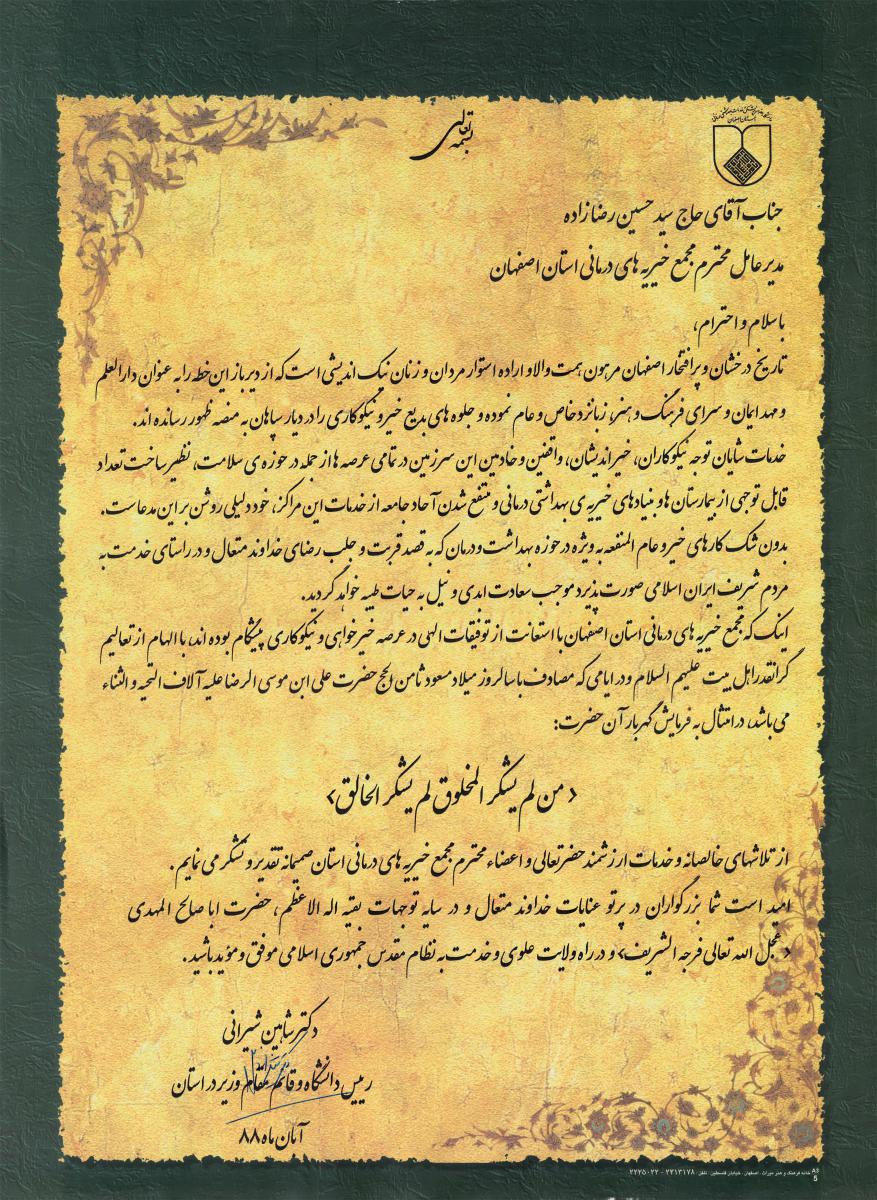 بسمه تعالی
جناب آقای حاج سید حسین رضازاده
مدیر عامل محترم مجمع خیریه های درمانی استان اصفهان
با سلام و احترام،
تاریخ درخشان و پرافتخار اصفهان مرهون همت والا و اراده استوار مردان و زنان نیک اندیشی است که از دیرباز این خطه را به عنوان دارالعلم
و مهد ایمان و سرای فرهنگ و هنر، زبانزد خاص و عام نموده و جلوه های بدیع خیر و نیکوکاری را در دیار سپاهان به منصه ظهور رسانده اند.
خدمات شایان توجه نیکوکاران، خیراندیشان، واقفین و خادمین این سرزمین در تمامی عرصه ها از جمله در حوزه ی سلامت، نظیر ساخت تعداد
قابل توجهی از بیمارستان ها و بنیادهای خیریه ی بهداشتی درمانی و منتفع شدن آحاد جامعه از خدمات این مراکز، خود دلیلی روشن بر این مدعاست.
بدون شک کارهای خیر و عام المنفعه به ویژه در حوزه بهداشت و درمان که به قصد قربت و جلب رضای خداوند متعال و در راستای خدمت به
مردم شریف ایران اسلامی صورت پذیرد موجب سعادت ابدی و نیل به حیات طیبه خواهد گردید.
اینک که مجمع خیریه های درمانی استان اصفهان با استعانت از توفیقات الهی در عرصه خیرخواهی و نیکوکاری پیشگام بوده اند، با الهام از تعالیم
گرانقدر اهل بیت علیهم السلام و در ایامی که مصادف با سالروز میلاد مسعود ثامن الحج حضرت علی ابن موسی الرضا علیه آلاف التحیه و الثناء
می باشد، در امتثال به فرمایش گهربار آن حضرت:
‹ من لم یشکر المخلوق لم یشکر الخالق ›
از تلاشهای خالصانه و خدمات ارزشمند حضرتعالی و اعضاء محترم مجمع خیریه های درمانی استان صمیمانه تقدیر و تشکر می نمایم.
امید است شما بزرگواران در پرتو عنایات خداوند متعال و در سایه توجهات بقیه اله الاعظم، حضرت ابا صالح المهدی
‹ عجل الله تعالی فرجه الشریف › و در راه ولایت علوی و خدمت به نظام مقدس جمهوری اسلامی موفق و مؤید باشید.
دکتر شاهین شیرانی
رییس دانشگاه و قائم مقام وزیر در استان
آبان ماه ۸۸
خانه فرهنگ و هنر میراث - اصفهان - خیابان فلسطین - تلفن: ۲۲۱۳۱۷۸ - ۲۲۲۵۰۲۲
A3
5